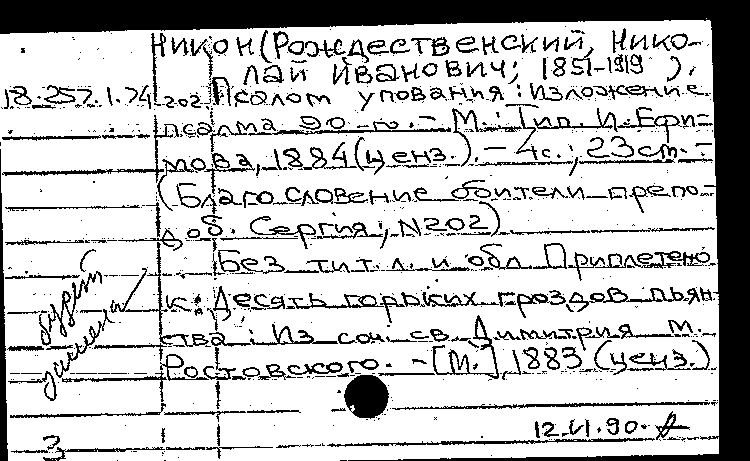 Никон (Рождественский, Нико-
лай Иванович; 1851-1919).
18.257.1.74 202 Псалом упования: Изложение
псалма 90-го. - М.: Тип. И. Ефи-
мова, 1884 (ценз.). - 4с.; 23см. -
(Благословение обители препо-
доб. Сергия; N202).
Без тит.л. и обл. Приплетено
к: Десять горьких гроздов пьян-
ства: Из соч. св. Димитрия м.
Ростовского. - [М.], 1883 (ценз.)
будет
замена
3
12.VI.90.